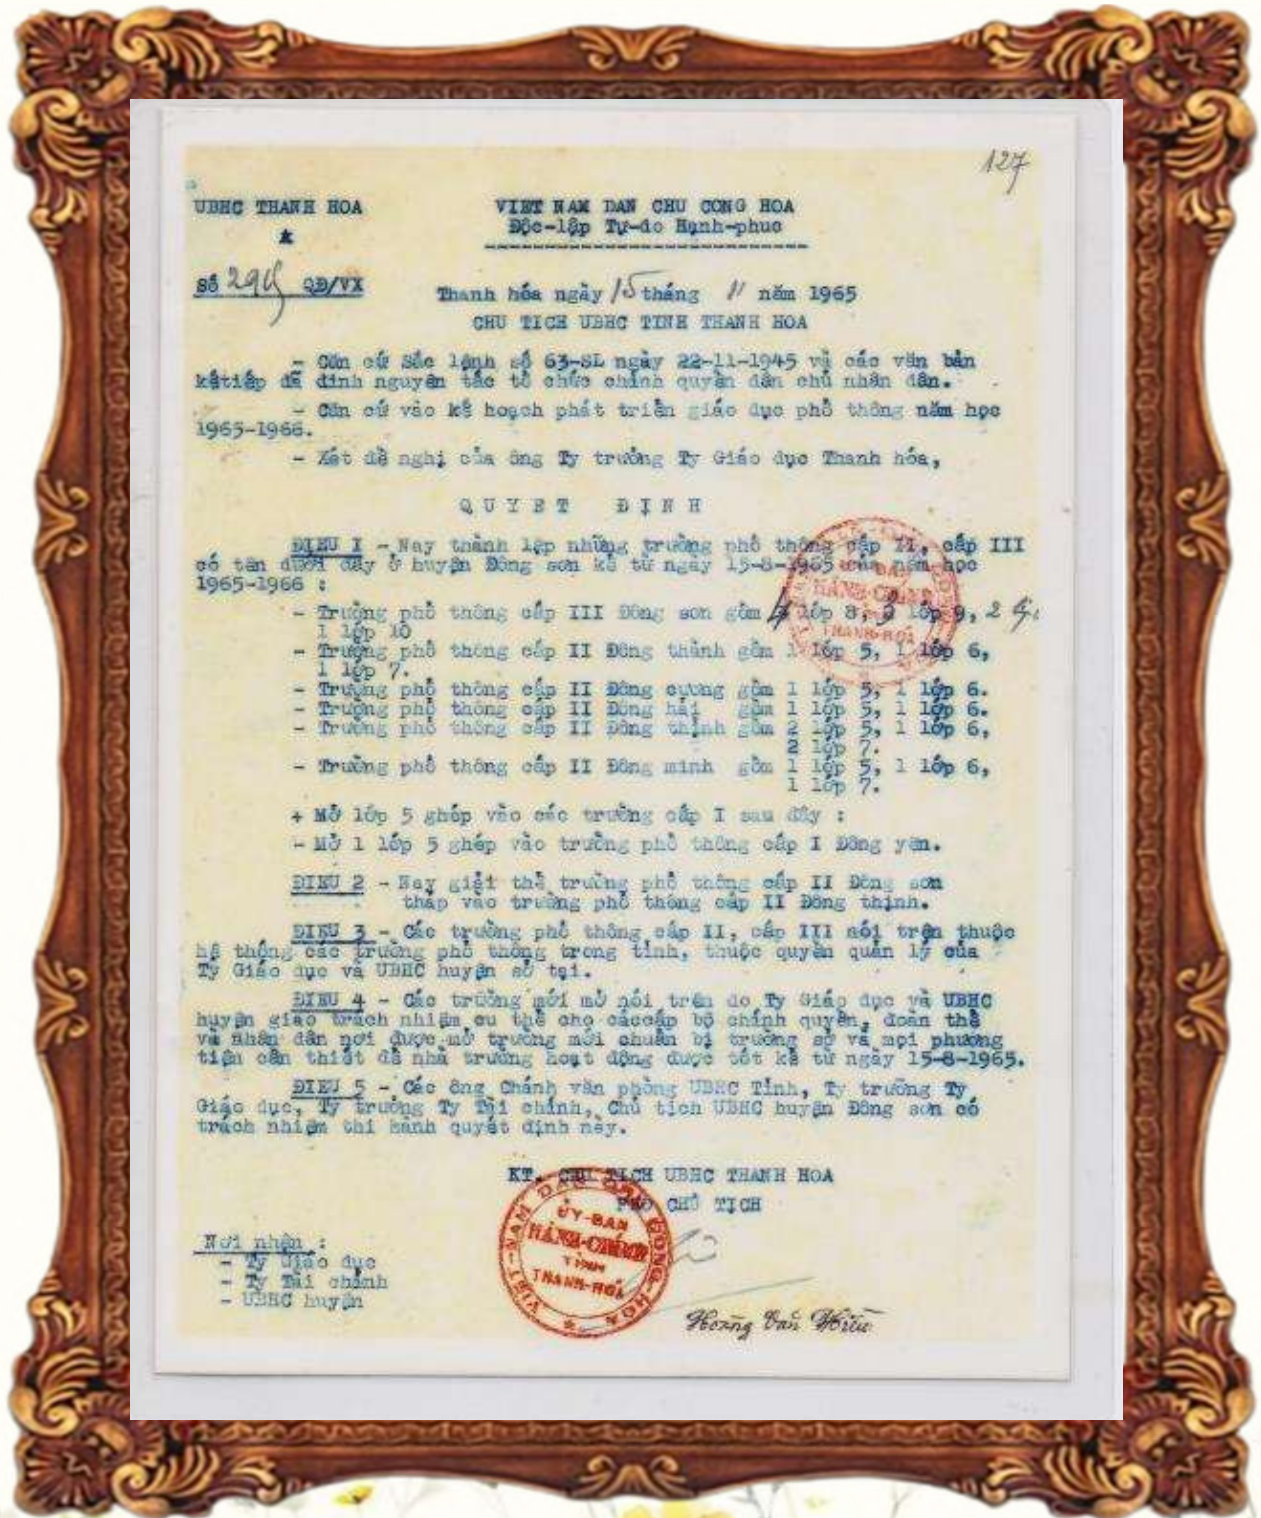 127
UBHC THANH HOA
VIET NAM DAN CHU CONG HOA
Độc-lập Tự-do Hạnh-phuc
Số QĐ/VX
Thanh hóa ngày 15 tháng 11 năm 1965
CHU TICH UBHC TINH THANH HOA
- Căn cứ Sắc lệnh số 63-SL ngày 22-11-1945 và các văn bản
kếtiếp đã đinh nguyên tắc tổ chức chính quyền dân chủ nhân dân.
- Căn cứ vào kế hoạch phát triển giáo dục phổ thông năm học
1965-1966.
- Xét đề nghị của ông Ty trưởng Ty Giáo dục Thanh hóa,
QUYET ĐỊNH
ĐIEU I - Nay thành lập những trường phổ thông cấp II, cấp III
có tên dưới đây ở huyện Đông sơn kể từ ngày 15-8-1965 của năm học
1965-1966 :
- Trường phổ thông cấp III Đông sơn gồm 4 lớp 8, lớp 9, 2
1 lớp 10
- Trường phổ thông cấp II Đông thành gồm 1 lớp 5, 1 lớp 6,
1 lớp 7.
- Trường phổ thông cấp II Đông cương gồm 1 lớp 5, 1 lớp 6.
- Trường phổ thông cấp II Đông hải gồm 1 lớp 5, 1 lớp 6.
- Trường phổ thông cấp II Đông thịnh gồm 2 lớp 5, 1 lớp 6,
2 lớp 7.
- Trường phổ thông cấp II Đông minh gồm 1 lớp 5, 1 lớp 6,
1 lớp 7.
+ Mở lớp 5 ghép vào các trường cấp I sau đây :
- Mở 1 lớp 5 ghép vào trường phổ thông cấp I Đông yên.
ĐIEU 2 - Nay giải thể trường phổ thông cấp II Đông sơn
tháp vào trường phổ thông cấp II Đông thịnh.
ĐIEU 3 - Các trường phổ thông cấp II, cấp III nói trên thuộc
hệ thống các trường phổ thông trong tỉnh, thuộc quyền quản lý của
Ty Giáo dục và UBHC huyện sở tại.
ĐIEU 4 - Các trường mới mở nói trên do Ty Giáo dục và UBHC
huyện giao trách nhiệm cụ thể cho cáccấp bộ chính quyền, đoàn thể
và nhân dân nơi được mở trường mới chuẩn bị trường sở và mọi phương
tiện cần thiết để nhà trường hoạt động được tốt kể từ ngày 15-8-1965.
ĐIEU 5 - Các ông Chánh văn phòng UBHC Tỉnh, Ty trưởng Ty
Giáo dục, Ty trưởng Ty Tài chính, Chủ tịch UBHC huyện Đông sơn có
trách nhiệm thi hành quyết định này.
KT. CHU TICH UBHC THANH HOA
PHO CHỦ TỊCH
VIỆT-NAM DÂN CHỦ CỘNG-HÒA
ỦY-BAN
HÀNH-CHÍNH
TỈNH
THANH-HOÁ
Nơi nhận :
- Ty Giáo dục
- Ty Tài chánh
- UBHC huyện
Hoàng Văn Hiều